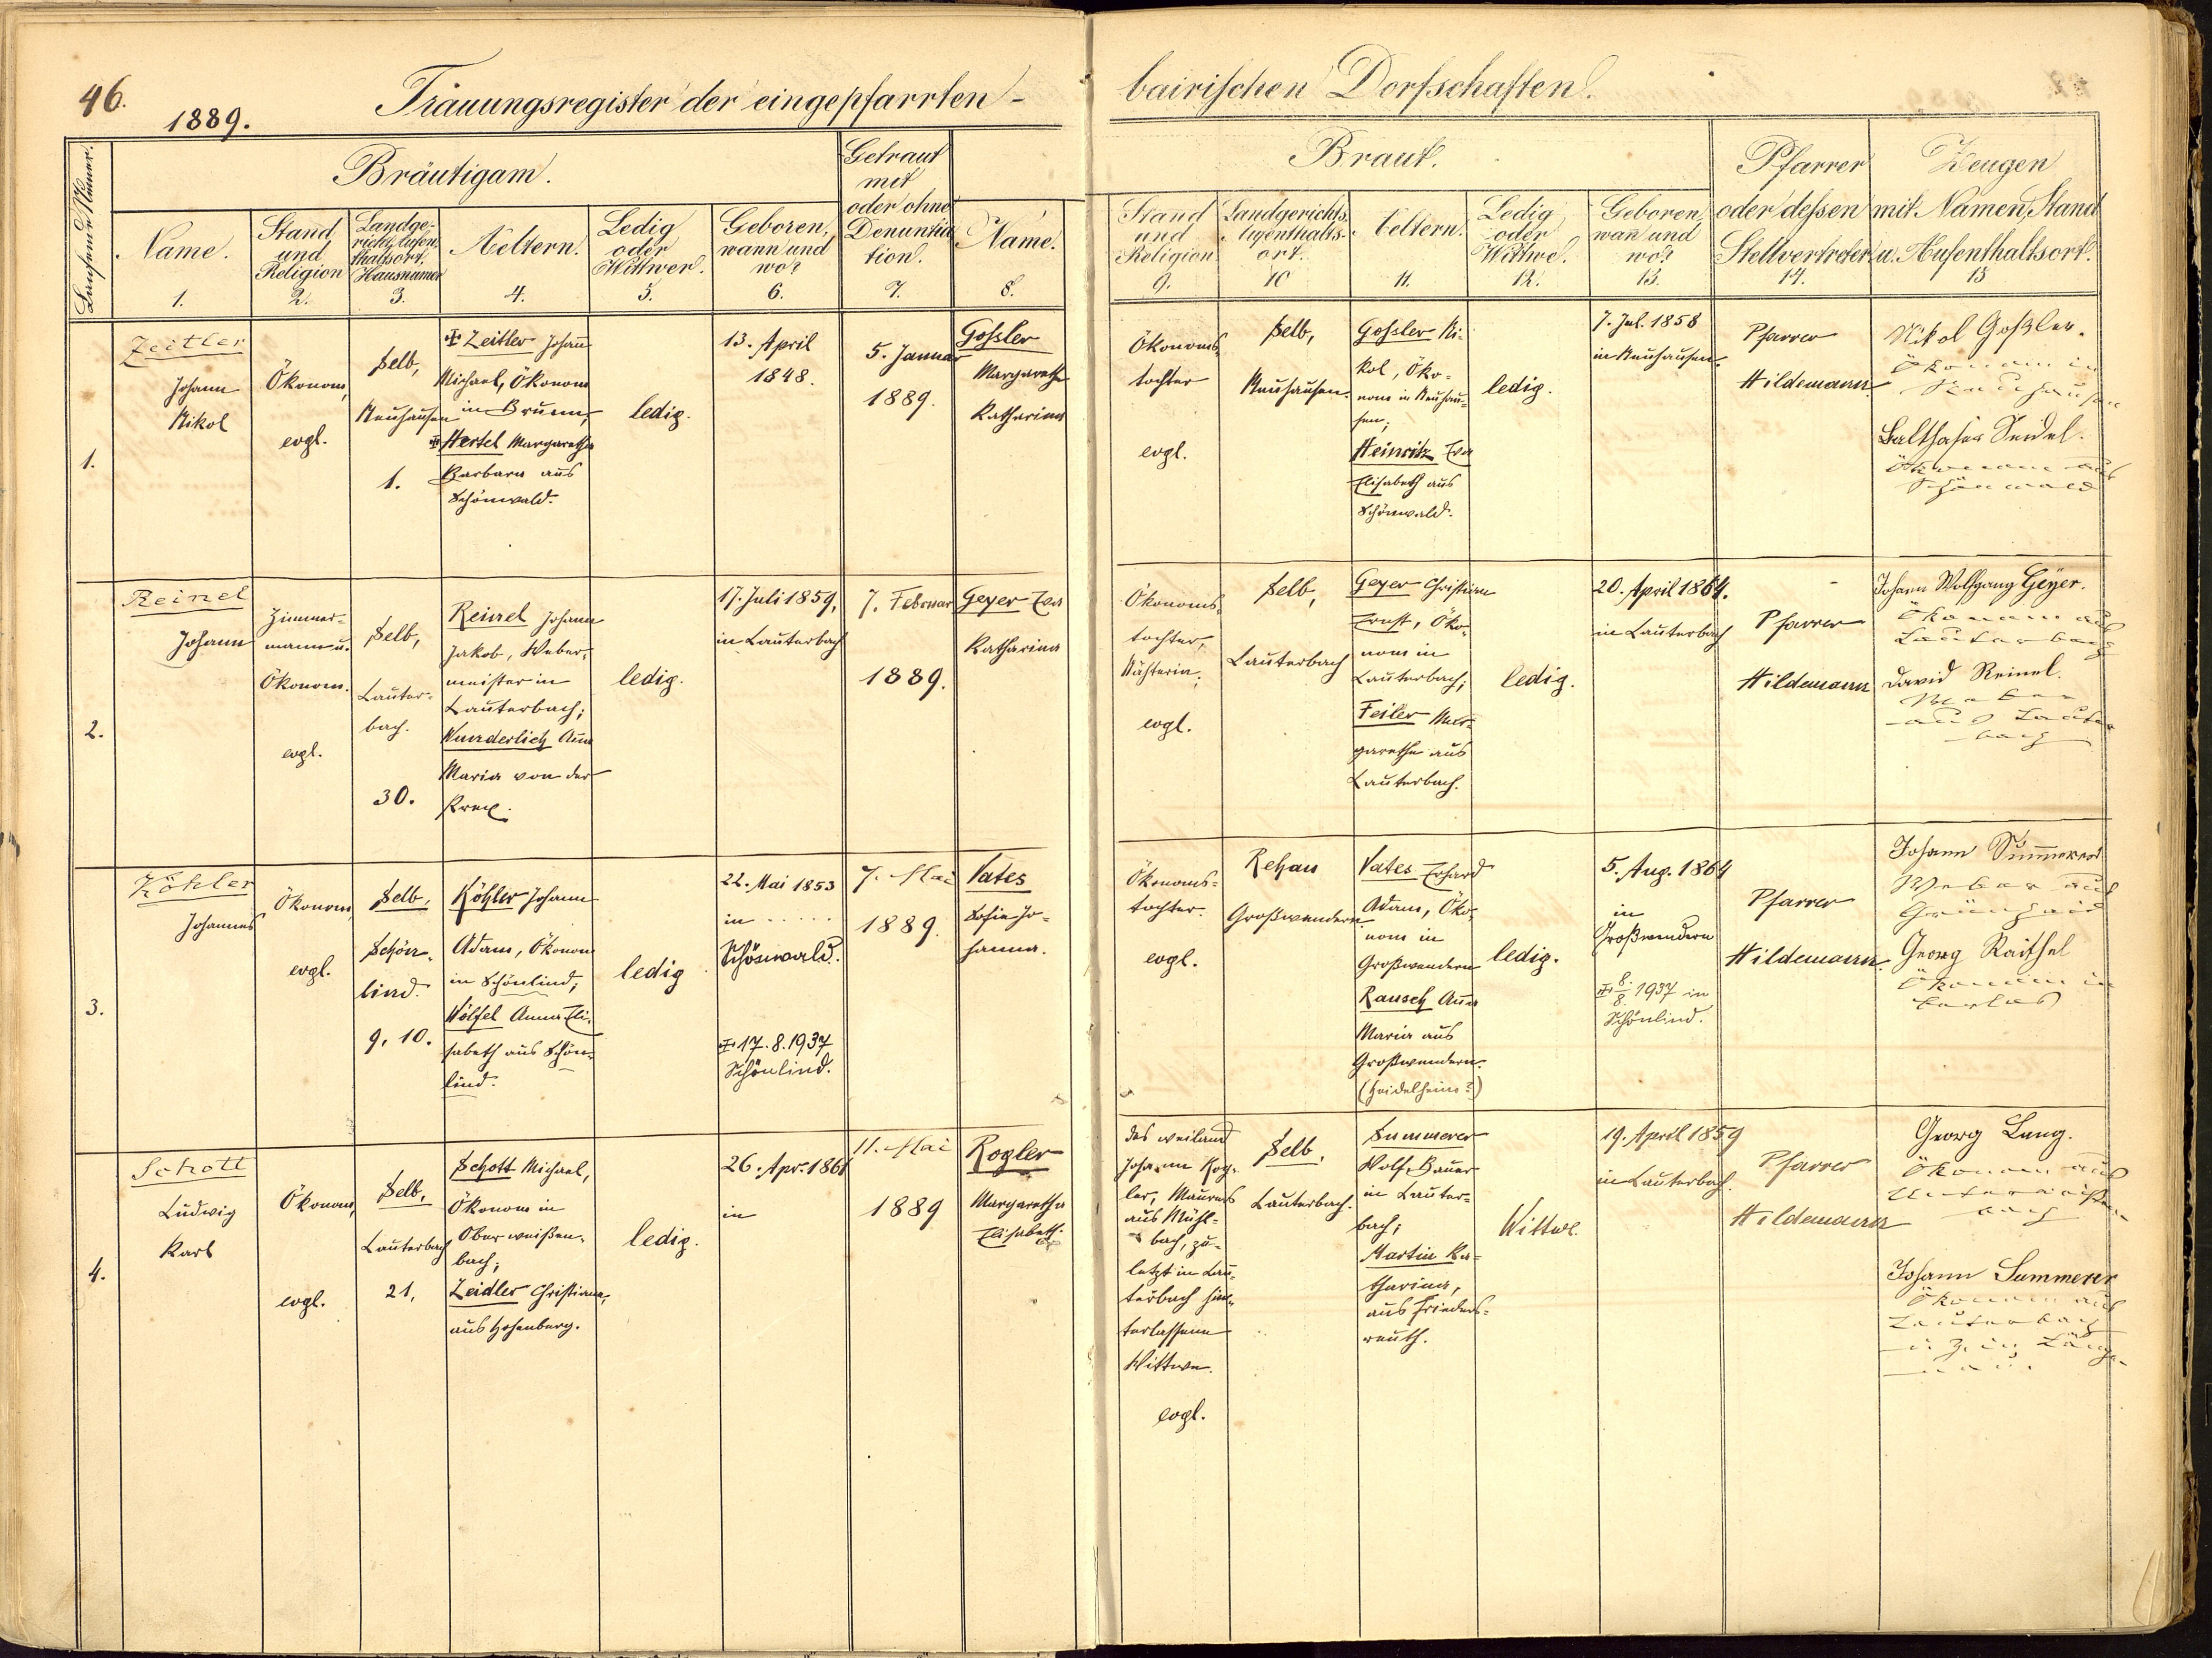 46.
1889.
Trauungsregister der eingepfarrten -
bairischen Dorfschaften.
Laufende Numer.
Bräutigam.
Getraut
mit
oder ohne
Denuntia
tion.
7.
Name.
1.
Stand
und
Religion
2.
Landge-
richt, Aufen
thaltsort.
Hausnumer
3.
Aeltern.
4.
Ledig
oder
Wittwer.
5.
Geboren,
wann und
wo?
6.
Name.
8.
Braut.
Stand
und
Religion
9.
Landgerichts.
Aufenthalts-
ort.
10
Aeltern.
11.
Ledig
oder
Wittwe.
12.
Geboren
wan̄ und
wo?
13.
Pfarrer
oder dessen
Stellvertreter
14.
Zeugen
mit Namen, Stand
u. Aufenthaltsort.
15
1.
Zeitler
Johann
Nikol
Ökonom,
evgl.
Selb,
Neuhausen
1.
Zeitler Johan̄
Michael, Ökonom
in Brunn,
Hertel Margaretha
Barbara aus
Schönwald.
ledig.
13. April
1848.
5. Januar
1889.
Gossler
Margaretha
Katharina
Ökonoms-
tochter
evgl.
Selb,
Neuhausen.
Gossler Ni-
kol, Öko-
nom in Neuhau-
sen;
Heinritz Eva
Elisabeth aus
Schönwald.
ledig.
7. Jul. 1858
in Neuhausen.
Pfarrer
Hildemann.
Nikol Goßler.
Ökonom in
Neuhausen
Balthasar Seidel.
Ökonom aus
Schönwald
2.
Reinel
Johann
Zimmer-
mann u.
Ökonom.
evgl.
Selb,
Lauter-
bach.
30.
Reinel Johann
Jakob, Weber-
meister in
Lauterbach;
Wunderlich Anna
Maria von der
ledig.
17. Juli 1859,
in Lauterbach
7. Februar
1889.
Geyer Eva
Katharina
Ökonoms-
tochter,
Nähterin,
evgl.
Selb,
Lauterbach
Geyer Christian
Ernst, Öko-
nom in
Lauterbach;
Feiler Mar-
garetha aus
Lauterbach.
ledig.
20. April 1864.
in Lauterbach
Pfarrer
Hildemann
Johann Wolfgang Geyer.
Ökonom aus
Lauterbach
David Reinel.
Weber
aus Lauter
bach
3.
Köhler
Johannes
Ökonom,
evgl.
Selb,
Schön-
lind.
9, 10.
Köhler Johann
Adam, Ökonom
in Schönlind;
Wölfel Anna Eli-
sabeth aus Schön-
lind.
ledig
22. Mai 1853
in .....
Schönwald.
17.8.1937
Schönlind.
7. Mai
1889.
Vates
Sofie Jo-
hanna.
Ökonoms-
tochter.
evgl.
Rehau
Großwendern
Vates Erhard
Adam, Öko-
nom in
Großwendern
Rausch Anna
Maria aus
Großwendern.
(Heidelheim?)
ledig.
5. Aug. 1864
in
Großwendern
8/8 1937 in
Schönlind.
Pfarrer
Hildemann.
Johann Summerer
Weber aus
Grünhaid
Georg Raithel
Ökonom in
4.
Schott
Ludwig
Karl
Ökonom,
evgl.
Selb,
Lauterbach
21,
Schott Michael,
Ökonom in
Oberweißen-
bach;
Zeidler Christiana,
aus Hohenberg.
ledig.
26. Apr. 1861
in
11. Mai
1889
Rogler
Margaretha
Elisabeth.
des weiland
Johann Rog-
ler, Maurers
aus Mühl-
bach, zu-
letzt in Lau-
terbach hin-
terlassene
Wittwe.
evgl.
Selb,
Lauterbach.
Summerer
Wolf, Bauer
in Lauter-
bach;
Martin Ka-
tharina,
aus Frieders-
reuth.
Wittwe.
19. April 1859
in Lauterbach.
Pfarrer
Hildemann
Georg Lang.
Ökonom aus
Johann Summerer
Ökonom aus
Lauterbach